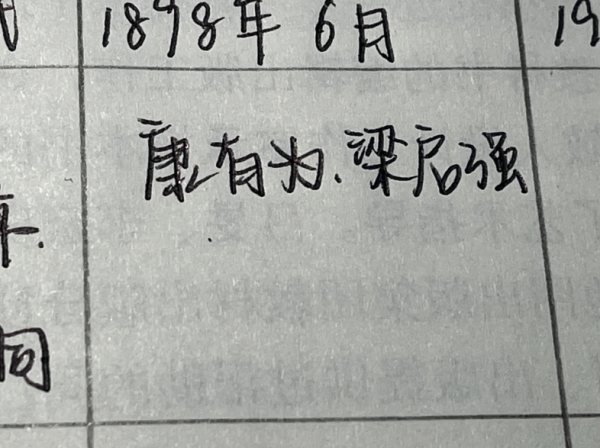 1898年6月
19
康有为、梁启强
同